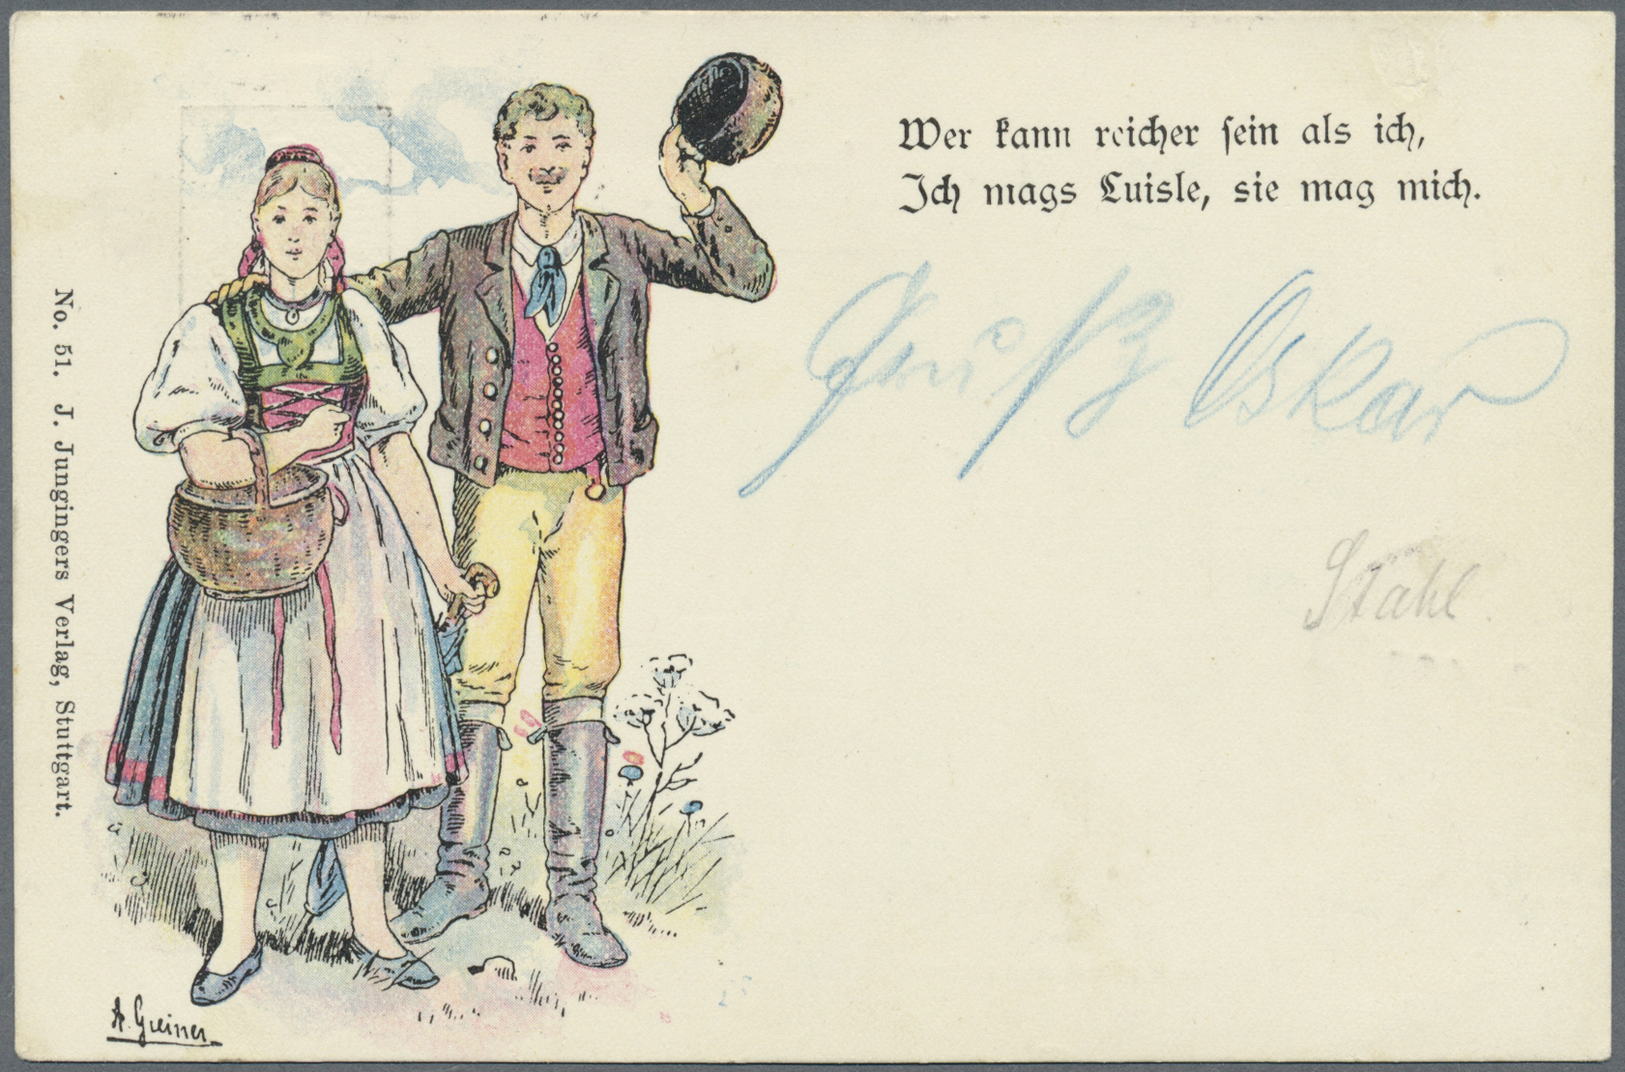 Wer kann reicher sein als ich,
Ich mags Luisle, sie mag mich.
Gruß Oskar
Stahl.
No. 51. J. Jungingers Verlag, Stuttgart.
A. Greiner